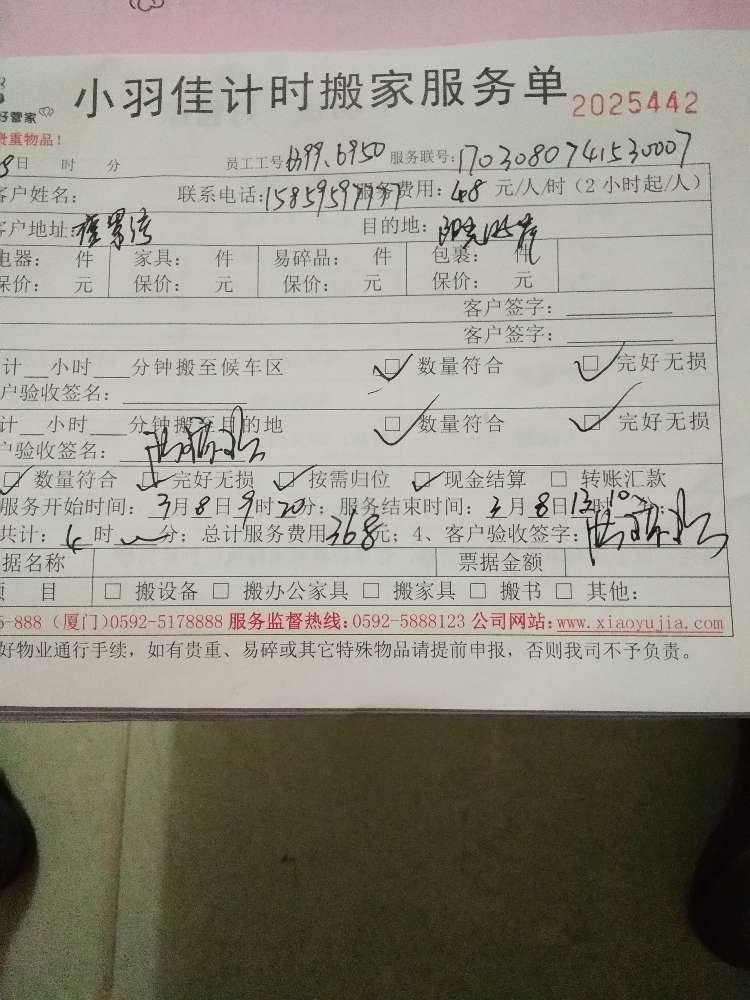 小羽佳计时搬家服务单 2025442
好管家
贵重物品！
日 时 分 员工工号：6699、6950 服务联号：1703080741530007
客户姓名： 联系电话：15859597737 服务费用：48 元/人/时（2小时起/人）
客户地址： 目的地：
电器： 件 家具： 件 易碎品： 件 包裹： 件
保价： 元 保价： 元 保价： 元 保价： 元
客户签字：
客户签字：
计___小时___分钟搬至候车区 ☑ 数量符合 ☑ 完好无损
户验收签名：
计___小时___分钟搬至目的地 ☑ 数量符合 ☑ 完好无损
户验收签名：
☑ 数量符合 ☑ 完好无损 ☑ 按需归位 ☑ 现金结算 □ 转账汇款
服务开始时间：3月8日9时20分；服务结束时间：3月8日13时10分；
共计：4时 分；总计服务费用368元；4、客户验收签字：
据名称 票据金额
项 目 □ 搬设备 □ 搬办公家具 □ 搬家具 □ 搬书 □ 其他：
-888（厦门）0592-5178888 服务监督热线：0592-5888123 公司网站：www.xiaoyujia.com
好物业通行手续，如有贵重、易碎或其它特殊物品请提前申报，否则我司不予负责。